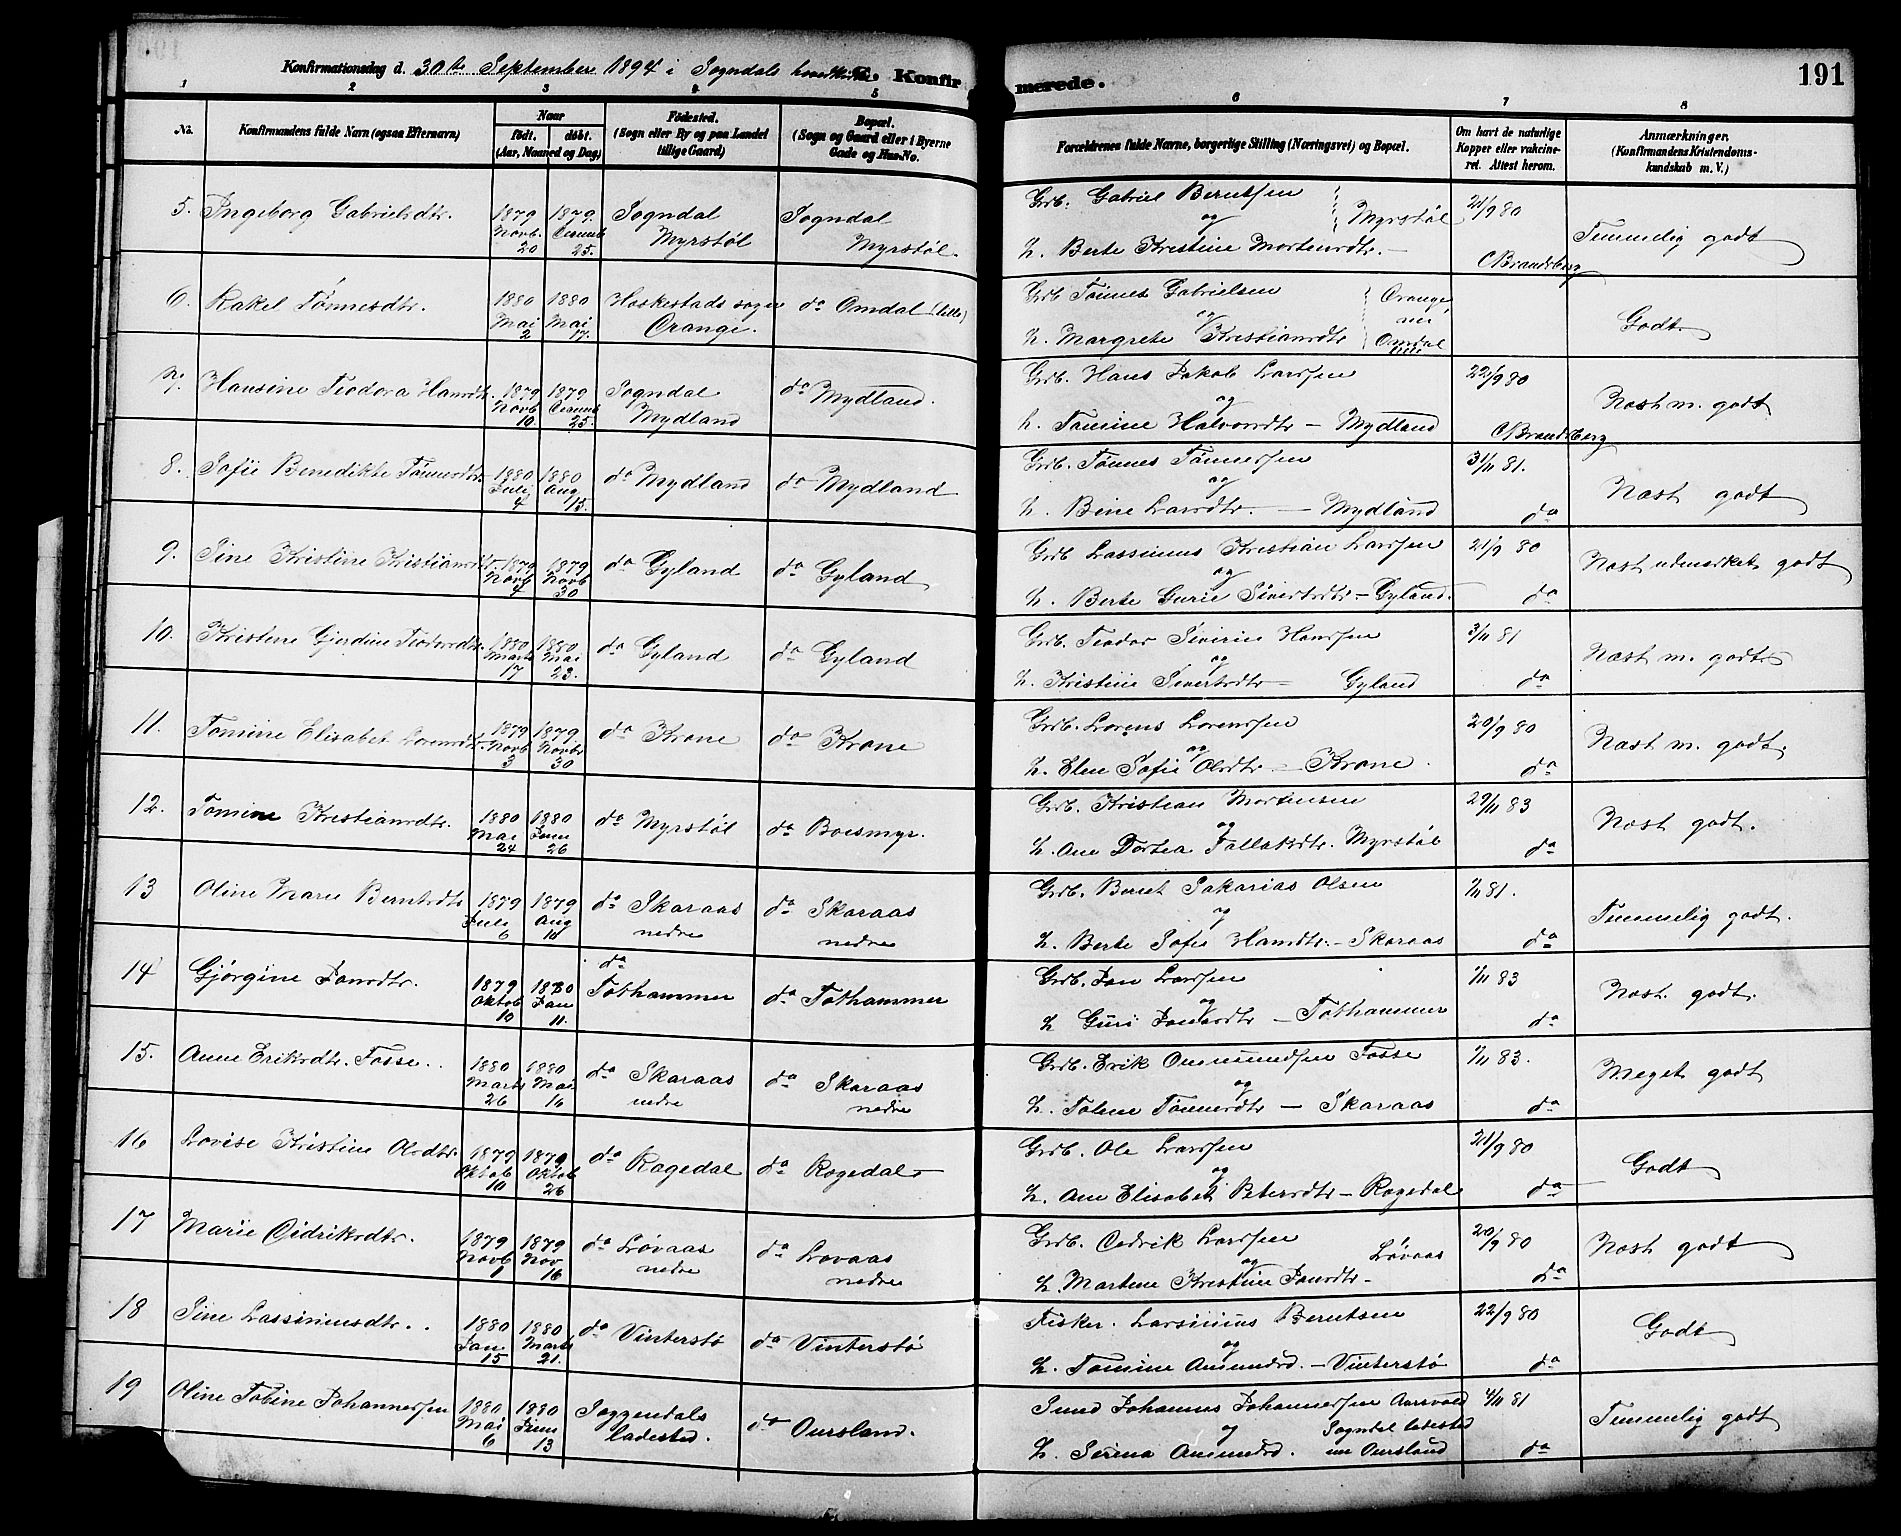 Konfirmationsdag d. 30te September 1894 i Sogndals hovedkirke C. Konfirmerede. 191
1 2 3 4 5 6 7 8
No. Konfirmandens fulde Navn (ogsaa Efternavn) Naar født. døbt. (Aar, Maaned og Dag) Fødested. (Sogn eller By og paa Landet tillige Gaard) Bopæl. (Sogn og Gaard eller i Byerne Gade og Hus-No. Forældrenes fulde Navne, borgerlige Stilling (Næringsvei) og Bopæl. Om havt de naturlige Kopper eller vakcineret. Attest herom. Anmærkninger. (Konfirmandens Kristendomskundskab m. V.)
5. Ingeborg Gabrielsdtr. 1879 Novb. 20 1879. Decemb 25. Sogndal Myrstøl Sogndal Myrstøl. Grdb. Gabriel Berntsen og h. Berte Kristine Mortensdtr. Myrstøl 21/9 80 C Brandsberg Temmelig godt
6. Rakel Tønnesdtr. 1880 Mai 2 1880 Mai 17. Heskestads sogn Orange. do Omdal (lille) Grdb Tønnes Gabrielsen og h. Margrete Kristiansdtr Orange nu Omdal lille Godt
7. Hansine Teodora Hansdtr. 1879 Novb 10 1879 Decemb 25. Sogndal Mydland do Mydland. Grdb. Hans Jakob Larssen og h. Tomine Halvorsdtr – Mydland 22/9 80 C Brandsberg Næst m. godt
8. Sofie Benedikte Tønnesdtr. 1880 Juli 4 1880 Aug 15. do Mydland do Mydland Grdb. Tønnes Tønnessen og h. Bine Larsdtr. – Mydland 3/11 81. do Næst godt
9. Sine Kristine Kristiansdtr. 1879 Novb 4 1879 Novb 30 do Gyland do Gyland Grdb Lassinus Kristian Larssen og h. Berte Gurie Sivertsdtr – Gyland. 21/9 80 do Næst udmerket godt
10. Kristine Gjerdine Teodorsdtr. 1880 Marts 17 1880 Mai 23. do Gyland do Gyland Grdb. Teodor Severin Hanssen og h. Kristine Sivertsdtr – Gyland 3/11 81 do Næst m. godt
11. Tomine Elisabet Lorensdtr. 1879 Novb 3 1879. Novbr 30 do Krone do Krone Grdb. Lorens Lorenssen og h. Elen Sofie Olsdtr – Krone. 20/9 80 do Næst m. godt.
12. Tomine Kristiansdtr. 1880 Mai 24 1880 Juni 26 do Myrstøl do Boesmyr. Grdb. Kristian Mortensen og h. Ane Dortea Tallaksdtr. Myrstøl 29/11 83 do Næst godt.
13 Oline Marie Berntsdtr 1879 Juli 6 1879 Aug 10 do Skaraas nedre do Skaraas nedre Grdb. Bernt Sakarias Olsen og h. Berte Sofie Hansdtr. – Skaraas 1/11 81. do Temmelig godt.
14 Gjørgine Jansdtr. 1879 Oktob 19 1880 Jan 11. do Tothammer do Tothammer Grdb. Jan Larssen og h Guri Jansdtr – Tothammer 1/11 83 do Næst godt.
15. Anne Eriksdtr. Fosse. 1880 Marts 26 1880 Mai 16 do Skaraas nedre do Skaraas nedre Grdb. Erik Ommundsen Fosse og h. Tolene Tønnesdtr – Skaraas 1/11 83. do Meget godt
16 Lovise Kristine Olsdtr. 1879 Oktob 10 1879 Oktob 26 do Ragedal do Rogedal Grdb. Ole Larssen og h. Ane Elisabet Petersdtr – Ragedal 21/9 80 do Godt
17 Marie Didriksdtr. 1879 Novb 1 1879 Nov 16 do Løvaas nedre do Lovaas nedre Grdb. Cedrik Larssen og h. Martine Kristine Jansdtr – Løvaas 20/9 80 do Næst godt
18 Sine Lassinusdtr. 1880 Jan 15 1880 Marts 21. do Vinterstø do Vinterstø Fisker. Larsinius Berntsen og h. Tomine Amundsd. – Vinterstø 22/9 80 do Godt
19 Oline Tobine Johannessen 1880 Mai 6 1880 Juni 13 Soggendals ladested. do Oursland. Smed Johannes Johannessen Aarsvold og h. Serina Amundsd. Sogndal ladested nu Oursland 4/11 81 do Temmelig godt